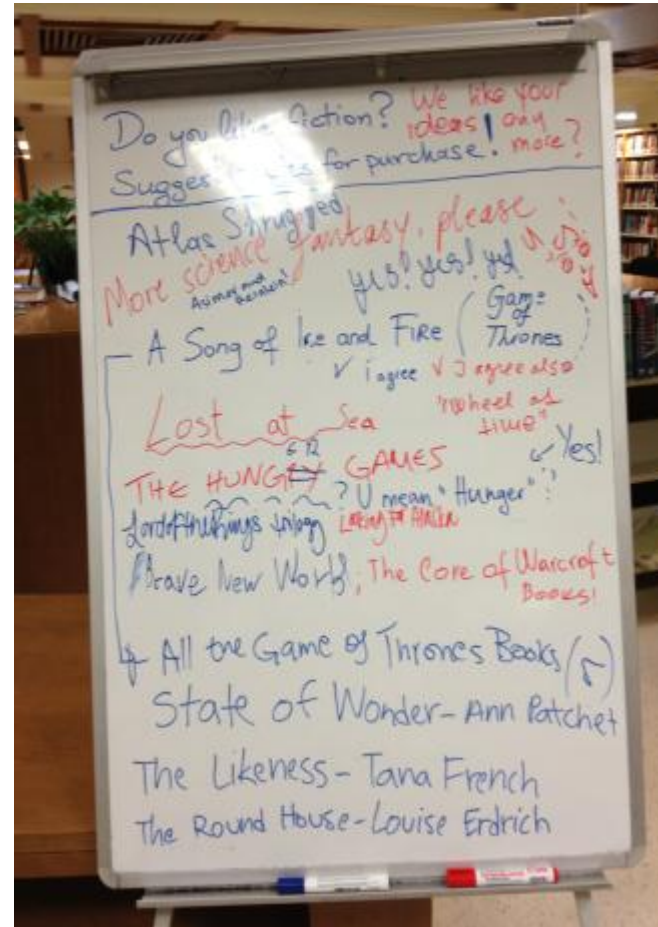 Do you like fiction? We like your
ideas! any
more?
Suggest titles for purchase!
Atlas Shrugged
More science fantasy, please
yes! yes! yes!
A Song of Ice and Fire (Game
of
Thrones
✓ i agree ✓ I agree also
"Wheel of
time"
Lost at Sea
Yes!
THE HUNGRY GAMES
? U mean "Hunger"?
Lord of the Rings trilogy Looking for Alaska
Brave New World, The Core of Warcraft
Books!
All the Game of Thrones Books (5)
State of Wonder - Ann Patchet
The Likeness - Tana French
The Round House - Louise Erdrich